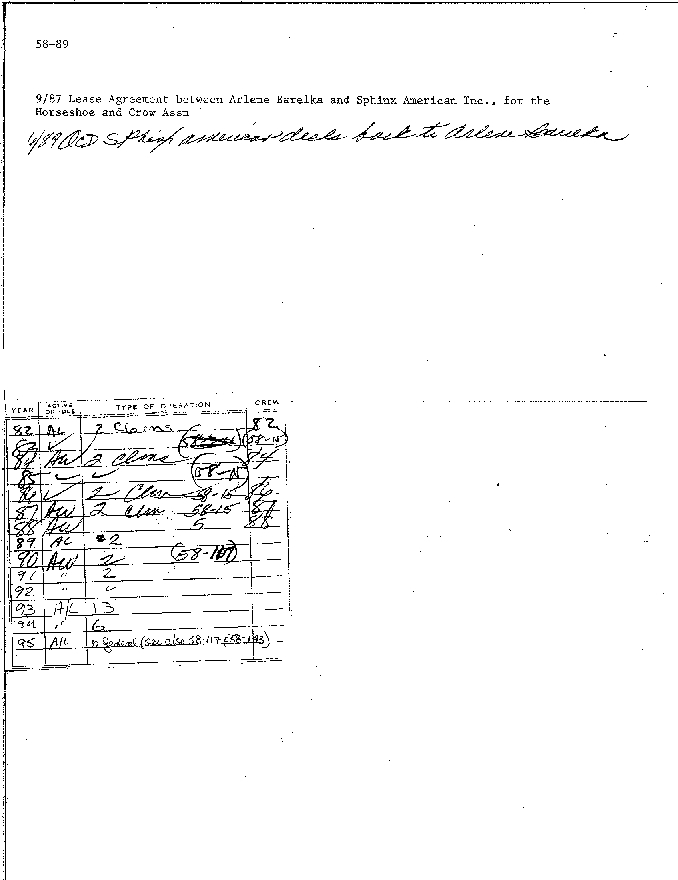 58-89
9/87 Lease Agreement between Arlene Earelka and Sphinx American Inc., for the
Horseshoe and Crow Assn
6/89 QCD Sphinx american deeds back to Arlene Earelka
YEAR ACTIVE OR IDLE TYPE OF OPERATION CREW
82 AL 2 Claims 82
83 ✓ (58-15)
84 AW 2 Clms 84
85 ✓ ✓ (58-15)
86 ✓ 2 Clm 58-15 86
87 AW 2 clm 58-15 87
88 AW 5 88
89 AL 2
90 AW 2 (58-107)
91 " 2
92 " "
93 A/L 13
94 " 6
95 A/L federal (see also 58-117 58-193)